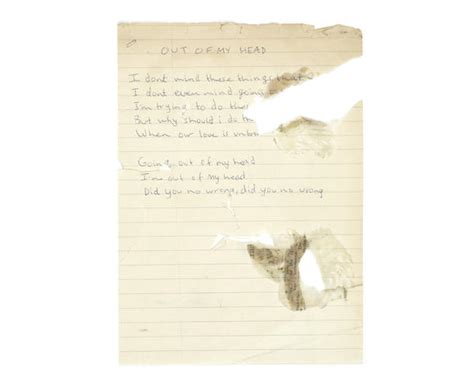 OUT OF MY HEAD
I dont mind these things that
I dont even mind going
I'm trying to do the
But why should i do th
When our love is
Going out of my head
I'm out of my head
Did you no wrong, did you no wrong